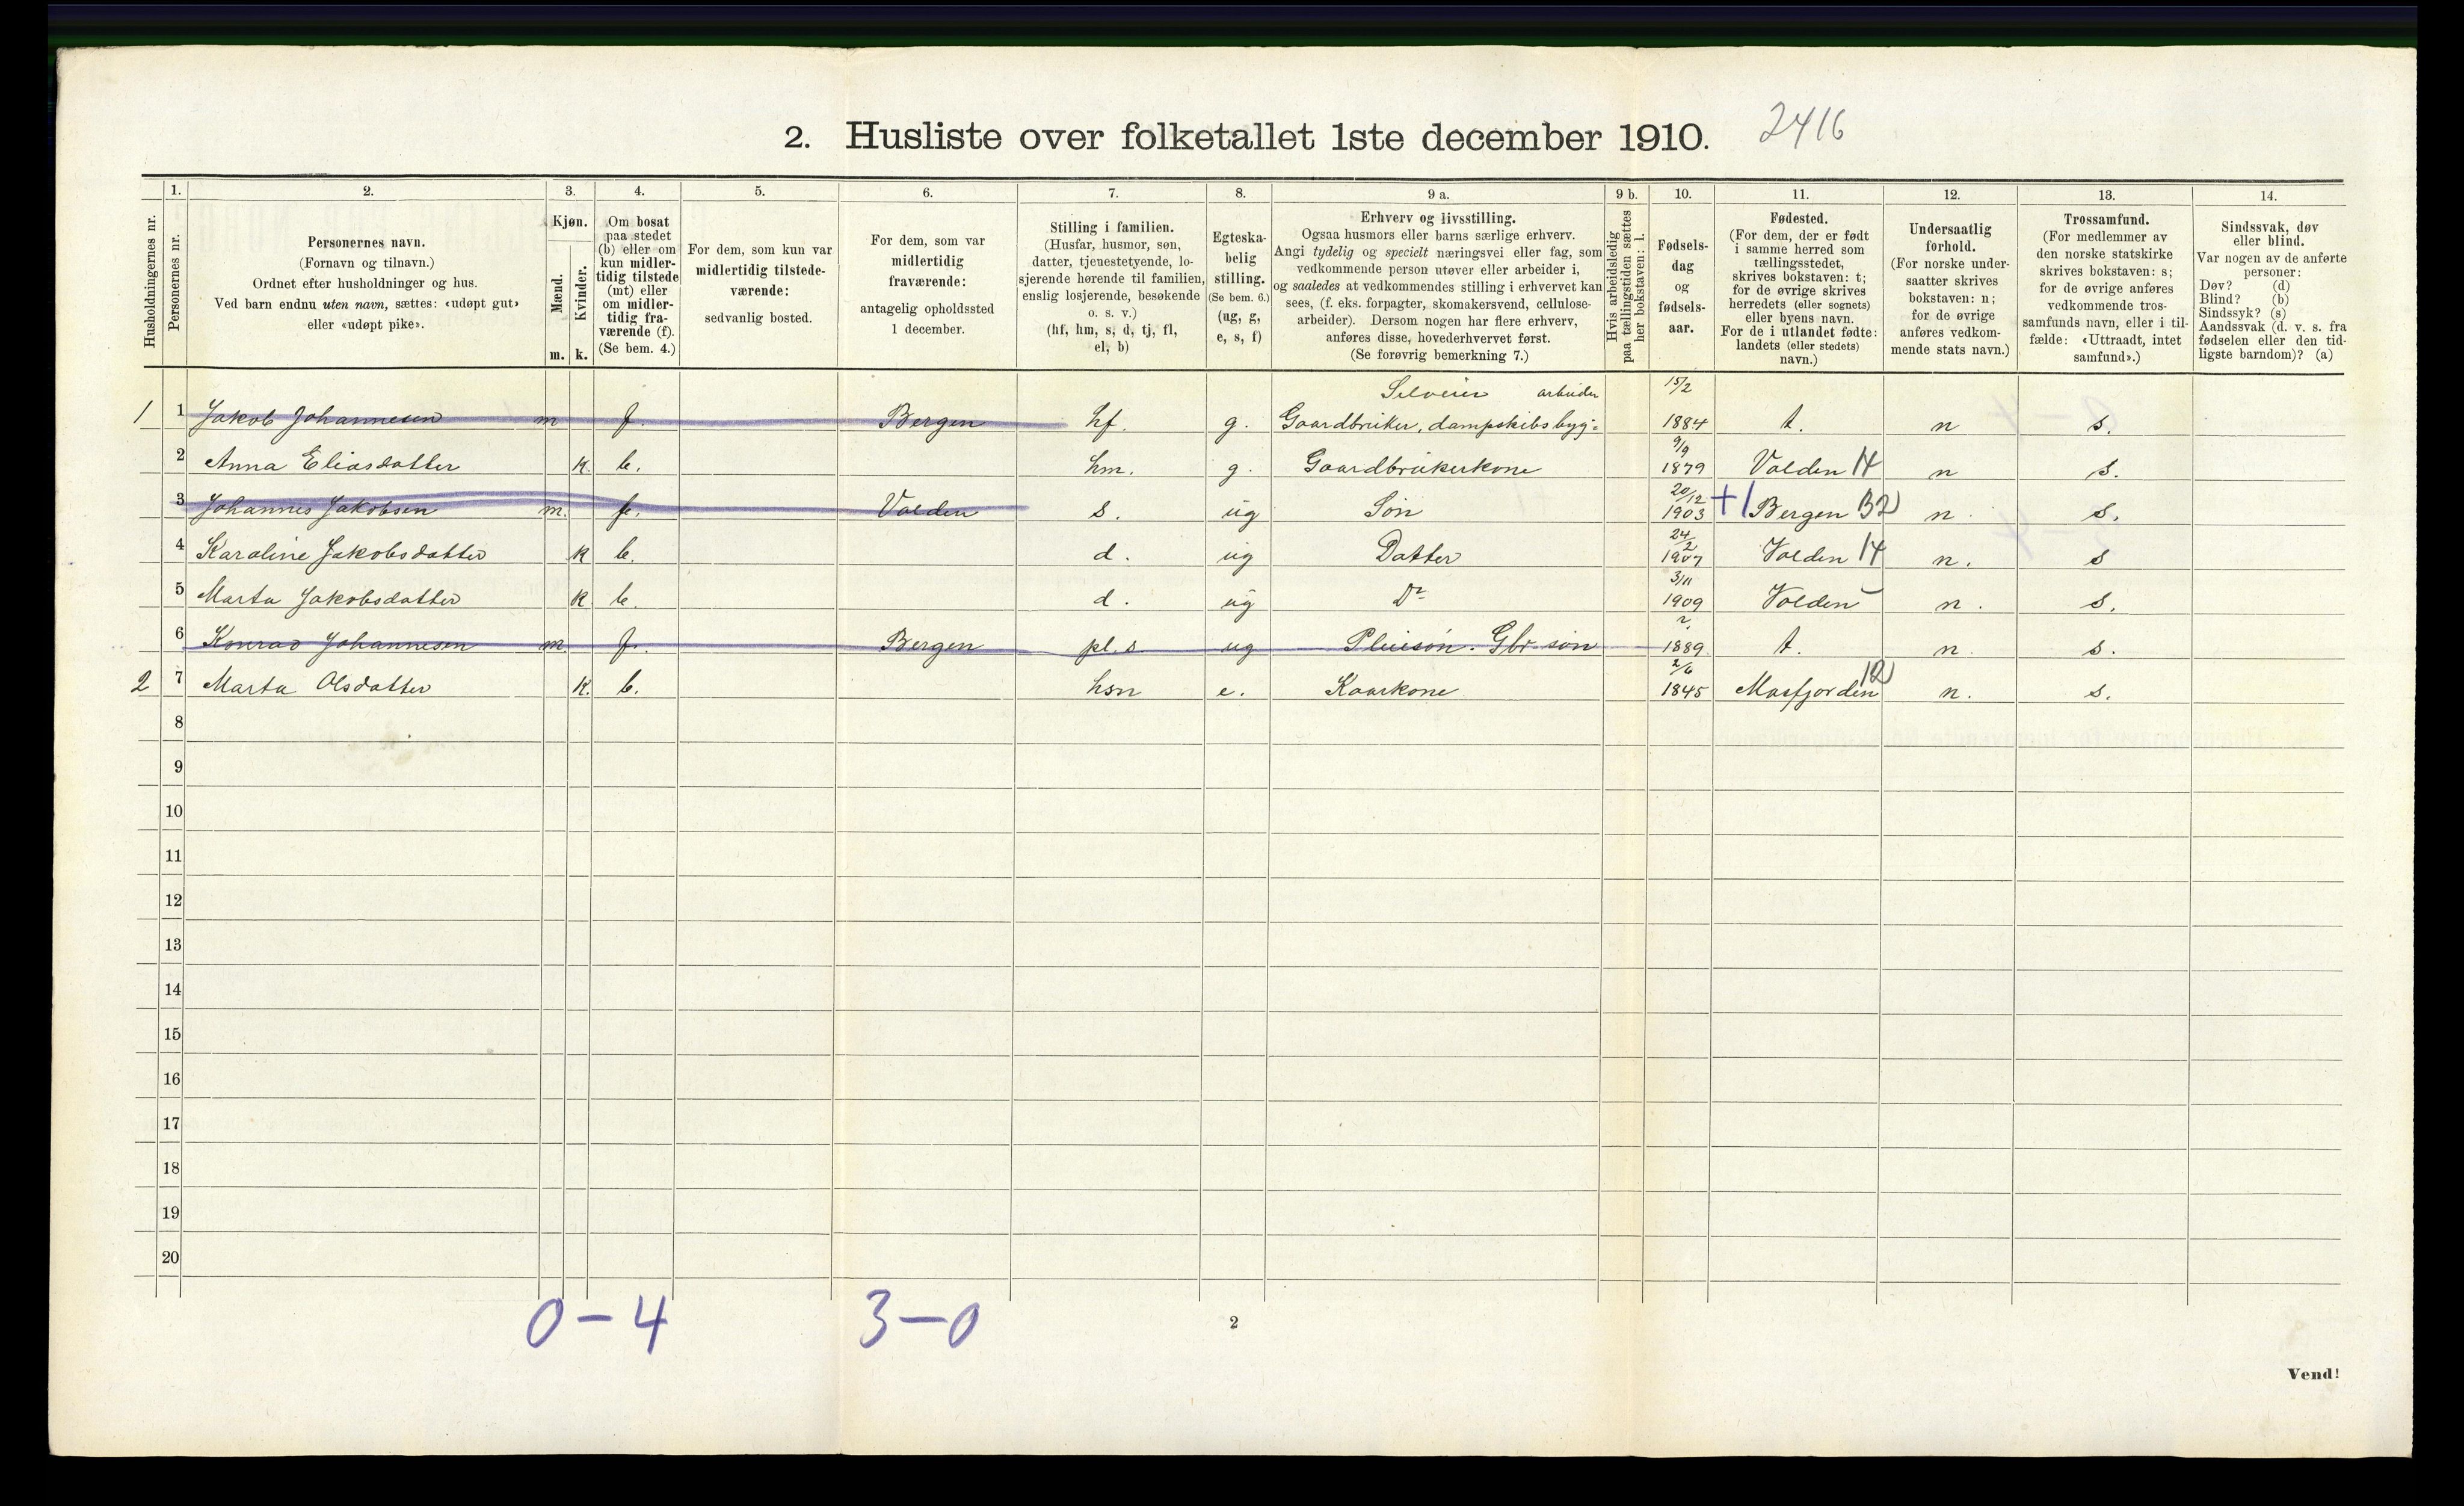 2. Husliste over folketallet 1ste december 1910. 2416
Husholdningernes nr.
1.
Personernes nr.
2.
Personernes navn.
(Fornavn og tilnavn.)
Ordnet efter husholdninger og hus.
Ved barn endnu uten navn, sættes: «udøpt gut»
eller «udøpt pike».
3.
Kjøn.
Mænd.
Kvinder.
m. k.
4.
Om bosat
paa stedet
(b) eller om
kun midler-
tidig tilstede
(mt) eller
om midler-
tidig fra-
værende (f).
(Se bem. 4.)
5.
For dem, som kun var
midlertidig tilstede-
værende:
sedvanlig bosted.
6.
For dem, som var
midlertidig
fraværende:
antagelig opholdssted
1 december.
7.
Stilling i familien.
(Husfar, husmor, søn,
datter, tjenestetyende, lo-
sjerende hørende til familien,
enslig losjerende, besøkende
o. s. v.)
(hf, hm, s, d, tj, fl,
el, b)
8.
Egteska-
belig
stilling.
(Se bem. 6.)
(ug, g,
e, s, f)
9 a.
Erhverv og livsstilling.
Ogsaa husmors eller barns særlige erhverv.
Angi tydelig og specielt næringsvei eller fag, som
vedkommende person utøver eller arbeider i,
og saaledes at vedkommendes stilling i erhvervet kan
sees, (f. eks. forpagter, skomakersvend, cellulose-
arbeider). Dersom nogen har flere erhverv,
anføres disse, hovederhvervet først.
(Se forøvrig bemerkning 7.)
9 b.
Hvis arbeidsledig
paa tællingstiden sættes
her bokstaven: l.
10.
Fødsels-
dag
og
fødsels-
aar.
11.
Fødested.
(For dem, der er født
i samme herred som
tællingsstedet,
skrives bokstaven: t;
for de øvrige skrives
herredets (eller sognets)
eller byens navn.
For de i utlandet fødte:
landets (eller stedets)
navn.)
12.
Undersaatlig
forhold.
(For norske under-
saatter skrives
bokstaven: n;
for de øvrige
anføres vedkom-
mende stats navn.)
13.
Trossamfund.
(For medlemmer av
den norske statskirke
skrives bokstaven: s;
for de øvrige anføres
vedkommende tros-
samfunds navn, eller i til-
fælde: «Uttraadt, intet
samfund».)
14.
Sindssvak, døv
eller blind.
Var nogen av de anførte
personer:
Døv? (d)
Blind? (b)
Sindssyk? (s)
Aandssvak (d. v. s. fra
fødselen eller den tid-
ligste barndom)? (a)
Selveier arbeider 15/2
1 1 Jakob Johannesen m f. Bergen hf. g. Gaardbruker, dampskibsbyg= 1884 t. n s.
9/9
2 Anna Eliasdatter k. b. hm. g. Gaardbrukerkone 1879 Valden 14 n s.
20/12
3 Johannes Jakobsen m. f. Valden s. ug Søn 1903 +1 Bergen B2 n. s.
24/2
4 Karoline Jakobsdatter k b. d. ug Datter 1907 Valden 14 n. s
3/11
5 Marta Jakobsdatter k b. d. ug Do 1909 Valden n. s.
6 Konrad Johannesen m. f. Bergen pl.s ug Pleiesøn. Gbr søn 1889 t. n. s.
2/6
2 7 Marta Olsdatter k. b. hsn e. Kaarkone 1845 Masfjorden 12 n. s.
8
9
10
11
12
13
14
15
16
17
18
19
20
0-4 3-0
2
Vend!